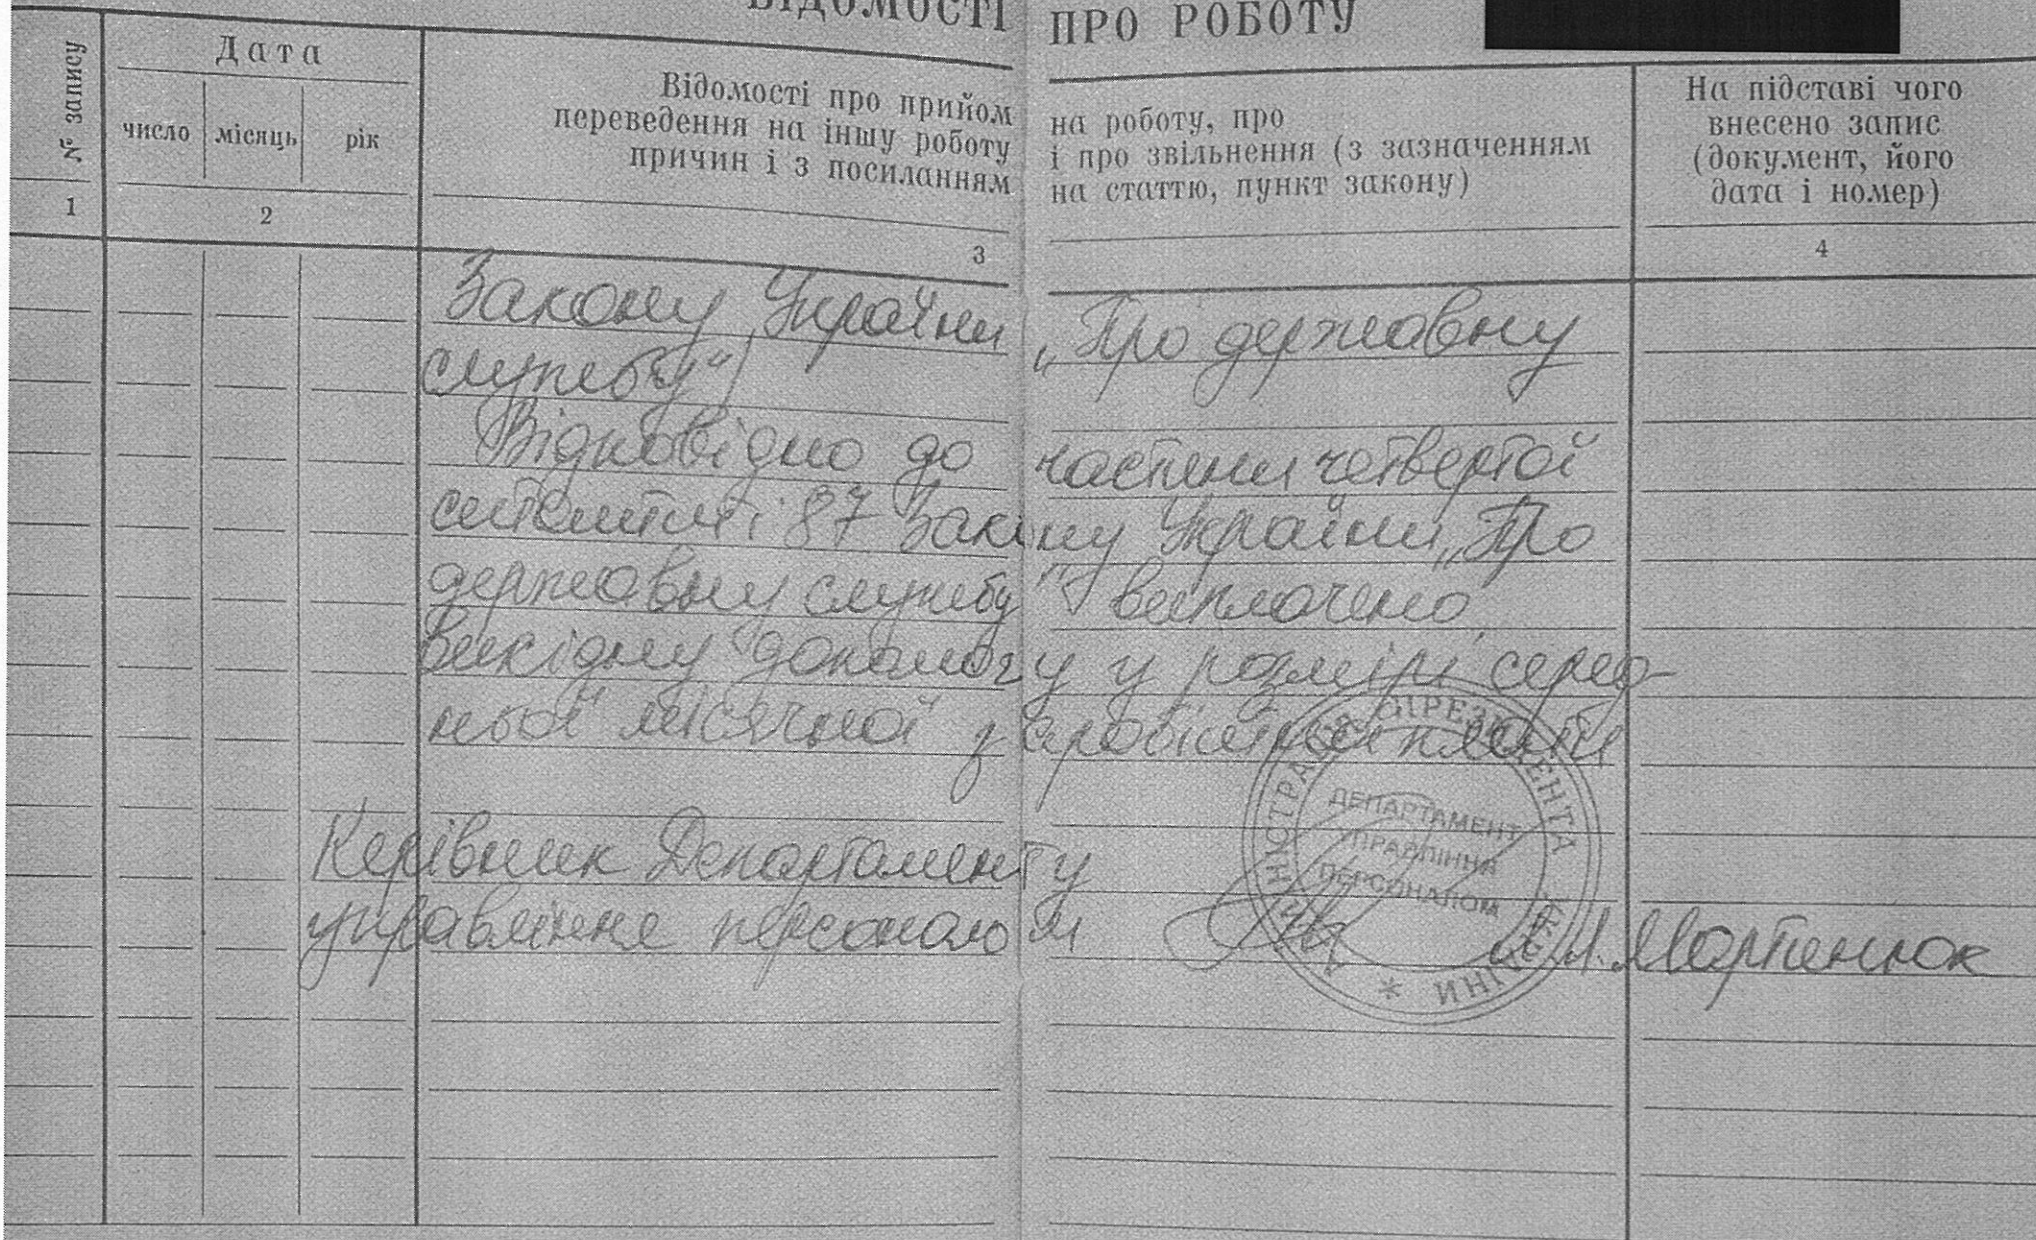 ВІДОМОСТІ ПРО РОБОТУ
№ запису
Дата
число місяць рік
Відомості про прийом на роботу, про
переведення на іншу роботу і про звільнення (з зазначенням
причин і з посиланням на статтю, пункт закону)
На підставі чого
внесено запис
(документ, його
дата і номер)
1 2 3 4
Закону України „Про державну
службу")
Відповідно до частини четвертої
статті 87 Закону України „Про
державну службу" виплачено
вихідну допомогу у розмірі серед-
ньої місячної заробітної плати
Керівник Департаменту
управління персоналом Мартинюк
АДМІНІСТРАЦІЯ ПРЕЗИДЕНТА УКРАЇНИ *
ДЕПАРТАМЕНТ
УПРАВЛІННЯ
ПЕРСОНАЛОМ